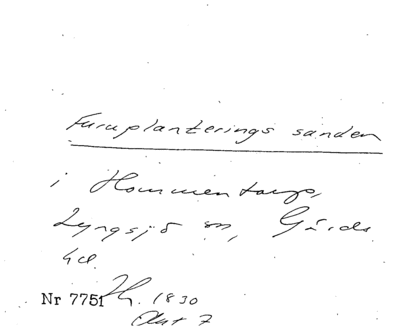 Furuplanterings sanden
i Hommentorps,
Lyngsjö sn, Gärds
hd.
Nr 7751 1830